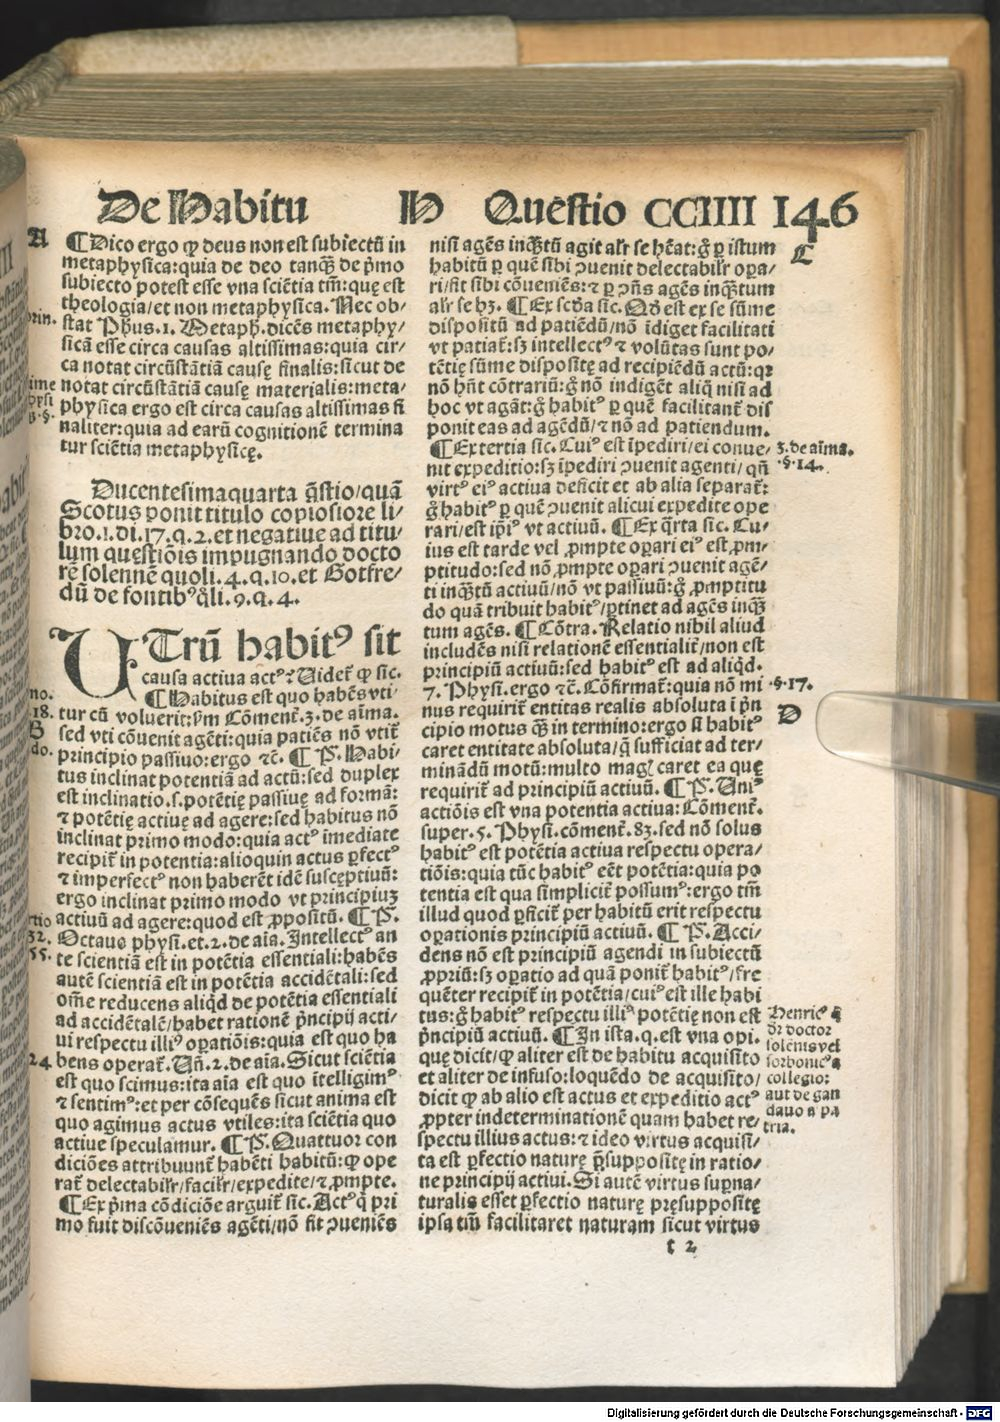 De Habitu H Questio CCIIII 146
A
¶Dico ergo ꝙ deus non est subiectū in
metaphysica:quia de deo tanqȝ de p̄mo
subiecto potest esse vna sciētia tm̄:quę est
theologia/et non metaphysica. Nec ob-
stat Ph̄us.1. Metaph̄.dicēs metaphy/
sicā esse circa causas altissimas:quia cir/
ca notat circūstātiā causę finalis:sicut de
notat circūstātiā causę materialis:meta/
physica ergo est circa causas altissimas fi
naliter:quia ad earū cognitionē termina
tur sciētia metaphysicę.
Ducentesimaquarta q̄stio/quā
Scotus ponit titulo copiosiore li/
bro.1.di.17.q.2.et negatiue ad titu/
lum questiōis impugnando docto
rē solennē quoli.4.q.10.et Gotfre/
dū de fontibꝰ q̄li.9.q.4.
UTrū habitꝰ sit
causa actiua actꝰ? Uidet̄ ꝙ sic.
¶Habitus est quo habēs vti/
tur cū voluerit:ẜm Cōment̄.3.de aīma.
sed vti cōuenit agēti:quia patiēs nō vtit̄
principio passiuo:ergo ⁊c. ¶ P̄. Habi/
tus inclinat potentiā ad actū:sed duplex
est inclinatio.s.potētię passiuę ad formā:
⁊ potētię actiuę ad agere:sed habitus nō
inclinat primo modo:quia actꝰ īmediate
recipit̄ in potentia:alioquin actus ꝑfectꝰ
⁊ imperfectꝰ non haberēt idē susceptiuū:
ergo inclinat primo modo vt principiuȝ
actiuū ad agere:quod est ꝓpositū. ¶ P̄.
Octauo physi.et.2.de aīa. Intellectꝰ an
te scientiā est in potētia essentiali:habēs
autē scientiā est in potētia accidētali:sed
om̄e reducens aliqd̄ de potētia essentiali
ad accidētalē/habet rationē p̄ncipij acti/
ui respectu illiꝰ oꝑatiōis:quia est quo ha
bens operat̄. Un̄.2.de aīa. Sicut sciētia
est quo scimus:ita aīa est quo ītelligimꝰ
⁊ sentimꝰ:et per cōsequēs sicut anima est
quo agimus actus vtiles:ita sciētia quo
actiue speculamur. ¶ P̄. Quattuor con
diciōes attribuunt̄ habēti habitū:ꝙ ope
rat̄ delectabil̄r/facil̄r/expedite/⁊ ꝓmpte.
¶Ex p̄ma cōdiciōe arguit̄ sic. Actꝰ q̄ pri
mo fuit discōueniēs agēti/nō fit ꝯueniēs
nisi agēs inqȝtū agit al̄r se h̄eat:g̊ ꝑ istum
habitū ꝑ quē sibi ꝯuenit delectabil̄r oꝑa/
ri/fit sibi cōueniēs:⁊ ꝑ ꝯn̄s agēs inqȝtum
al̄r se hȝ. ¶Ex scd̄a sic. Qd̄ est ex se sūme
dispositū ad patiēdū/nō īdiget facilitati
vt patiat̄:sȝ intellectꝰ ⁊ volūtas sunt po/
tētię sūme dispositę ad recipiēdū actū:qꝛ
nō hn̄t cōtrariū:g̊ nō indigēt aliq̄ nisi ad
hoc vt agāt:g̊ habitꝰ ꝑ quē facilitant̄ dis
ponit eas ad agēdū/⁊ nō ad patiendum.
¶Ex tertia sic. Cuiꝰ est īpediri/ei conue/
nit expeditio:sȝ īpediri ꝯuenit agenti/qn̄
virtꝰ eiꝰ actiua deficit et ab alia separat̄:
g̊ habitꝰ ꝑ quē ꝯuenit alicui expedite ope
rari/est ip̄iꝰ vt actiuū. ¶Ex q̄rta sic. Cu/
ius est tarde vel ꝓmpte oꝑari eiꝰ est ꝓm/
ptitudo:sed nō ꝓmpte oꝑari ꝯuenit agē/
ti inqȝtū actiuū/nō vt passiuū:g̊ ꝓmptitu
do quā tribuit habitꝰ/ꝑtinet ad agēs inqȝ
tum agēs. ¶Cōtra. Relatio nihil aliud
includēs nisi relationē essentialit̄/non est
principiū actiuū:sed habitꝰ est ad aliqd̄.
7. Physi.ergo ⁊c. Cōfirmat̄:quia nō mi
nus requirit̄ entitas realis absoluta ī p̄n
cipio motus qȝ in termino:ergo si habitꝰ
caret entitate absoluta/q̄ sufficiat ad ter/
minādū motū:multo magꝭ caret ea quę
requirit̄ ad principiū actiuū. ¶ P̄. Uniꝰ
actiōis est vna potentia actiua:Cōment̄.
super.5. Physi.cōment̄.83.sed nō solus
habitꝰ est potētia actiua respectu opera/
tiōis:quia tūc habitꝰ eēt potētia:quia po
tentia est qua simplicit̄ possumꝰ:ergo tm̄
illud quod ꝑficit̄ per habitū erit respectu
oꝑationis principiū actiuū. ¶ P̄. Acci/
dens nō est principiū agendi in subiectū
ꝓpriū:sȝ oꝑatio ad quā ponit̄ habitꝰ/fre
quēter recipit̄ in potētia/cuiꝰ est ille habi
tus:g̊ habitꝰ respectu illiꝰ potētię non est
p̄ncipiū actiuū. ¶In ista.q.est vna opi.
quę dicit/ꝙ aliter est de habitu acquisito
et aliter de infuso:loquēdo de acquisito/
dicit ꝙ ab alio est actus et expeditio actꝰ
ꝓpter indeterminationē quam habet re/
spectu illius actus:⁊ ideo virtus acquisi/
ta est ꝑfectio naturę p̄supposite in ratio/
ne principij actiui. Si autē virtus suꝑna/
turalis esset ꝑfectio naturę pręsupposite
ipsa tm̄ facilitaret naturam sicut virtus
t 2
C
3.de aīma.
.§.14.
.§.17.
D
Henricꝰ
dr̄ doctor
solenīs vel
sorbonicꝰ a
collegio:
aut de gan
dauo a pa
tria.
18.
B
do.
32.
55.
24
Digitalisierung gefördert durch die Deutsche Forschungsgemeinschaft - DFG